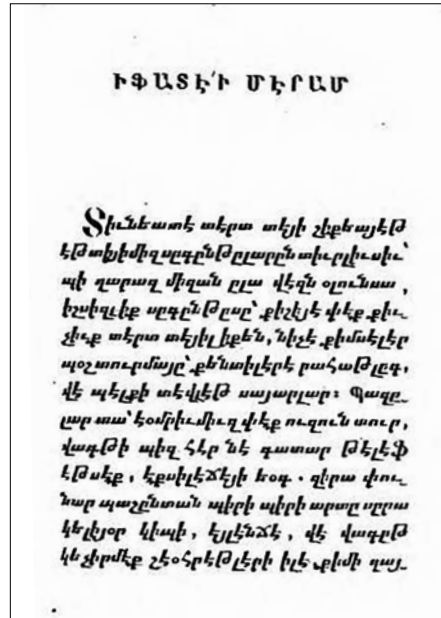 ԻՖԱՏԷ՛Ի ՄԷՐԱՄ
Տիւնեատէ տէրտ տէյի շիքեայէթ
էթտիյիմիզ սըգընթըլարըն տիւրլիւսիւ՝
պի ղարազ միզան ըլա վէզն օլունսա,
իշսիզլիք սըգընթըսը՝ քիշէյէ փէք քիւ_
չիւք տէրտ տէյիլ իքեն, նիչէ քիմսէլէր
պօշ տուրմայը՝ քենտիլէրէ րահաթլըգ,
վէ պէլքի տէվլէթ սայարլար։ Պազը_
լար տա՝ էօմրիւմիւզ փէք ուզուն տուր,
վագթի պիզ հէր նէ գատար թէլէֆ
էթսէք, էքսիլէճէյի եօգ. զիրա փու_
նար պաշընտան պիրի պիրի արտը սըրա
կելիյօր կիպի, էյլէնճէ, վէ վագըթ
կեչիրմէք շէօհրէթլէրի իլէ քիմի ղայ_